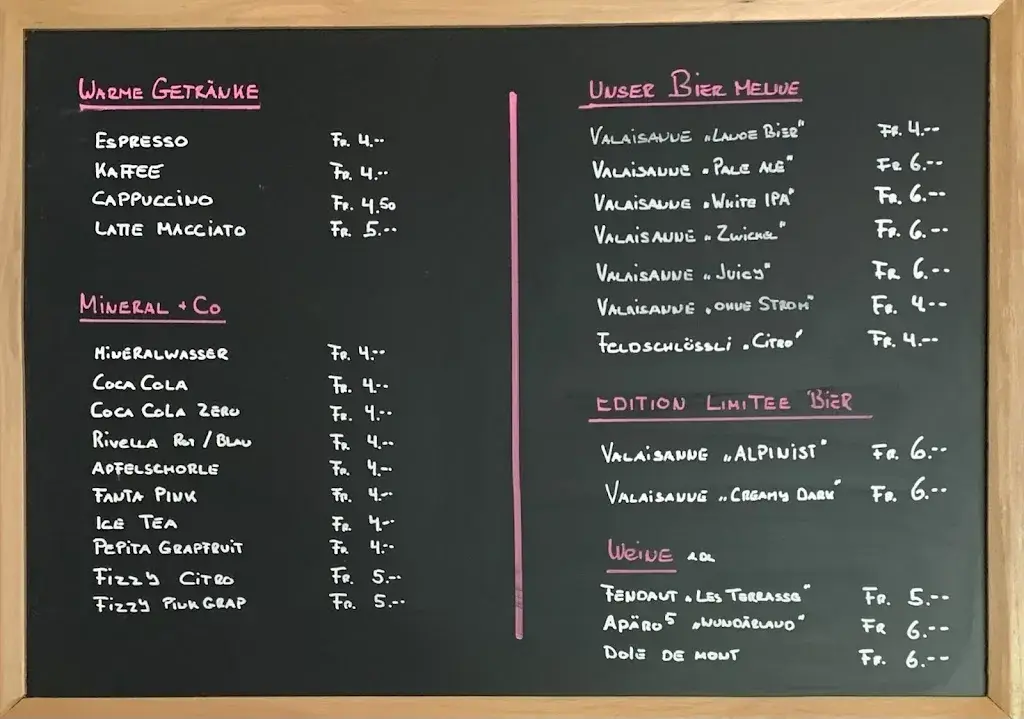 WARME GETRÄNKE
ESPRESSO Fr. 4.--
KAFFEE Fr. 4.--
CAPPUCCINO Fr. 4.50
LATTE MACCIATO Fr. 5.--
MINERAL + CO
MINERALWASSER Fr. 4.--
COCA COLA Fr. 4.--
COCA COLA ZERO Fr. 4.--
RIVELLA ROT / BLAU Fr. 4.--
APFELSCHORLE Fr. 4.--
FANTA PINK Fr. 4.--
ICE TEA Fr. 4.--
PEPITA GRAPFRUIT Fr. 4.--
FIZZY CITRO Fr. 5.--
FIZZY PINK GRAP Fr. 5.--
UNSER BIER MENUE
VALAISANNE „LANDE BIER" Fr. 4.--
VALAISANNE „PALE ALE" Fr 6.--
VALAISANNE „WHITE IPA" Fr. 6.--
VALAISANNE „ZWICKEL" Fr. 6.--
VALAISANNE „JUICY" Fr 6.--
VALAISANNE „OHNE STROM" Fr. 4.--
FELDSCHLÖSSLI „CITRO" Fr. 4.--
EDITION LIMITEE BIER
VALAISANNE „ALPINIST" Fr. 6.--
VALAISANNE „CREAMY DARK" Fr. 6.--
WEINE
FENDAUT „LES TERRASSE" Fr. 5.--
APÄRO5 „WUNDÄRLAND" Fr 6.--
DOLE DE MONT Fr. 6.--